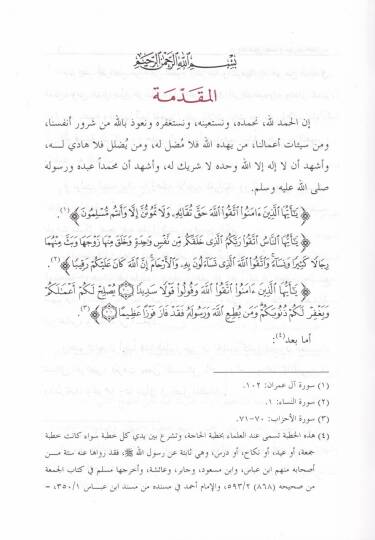 بسم الله الرحمن الرحيم
المقدمة
إن الحمد لله، نحمده، ونستعينه، ونستغفره ونعوذ بالله من شرور أنفسنا،
ومن سيئات أعمالنا، من يهده الله فلا مُضل له، ومن يُضلل فلا هادي لـه،
وأشهد أن لا إله إلا الله وحده لا شريك له، وأشهد أن محمداً عبده ورسوله
صلى الله عليه وسلم.
﴿ يَـٰٓأَيُّهَا ٱلَّذِينَ ءَامَنُوا۟ ٱتَّقُوا۟ ٱللَّهَ حَقَّ تُقَاتِهِۦ وَلَا تَمُوتُنَّ إِلَّا وَأَنتُم مُّسْلِمُونَ ﴾(١).
﴿ يَـٰٓأَيُّهَا ٱلنَّاسُ ٱتَّقُوا۟ رَبَّكُمُ ٱلَّذِى خَلَقَكُم مِّن نَّفْسٍ وَٰحِدَةٍ وَخَلَقَ مِنْهَا زَوْجَهَا وَبَثَّ مِنْهُمَا
رِجَالًا كَثِيرًا وَنِسَآءً ۚ وَٱتَّقُوا۟ ٱللَّهَ ٱلَّذِى تَسَآءَلُونَ بِهِۦ وَٱلْأَرْحَامَ ۚ إِنَّ ٱللَّهَ كَانَ عَلَيْكُمْ رَقِيبًا ﴾(٢).
﴿ يَـٰٓأَيُّهَا ٱلَّذِينَ ءَامَنُوا۟ ٱتَّقُوا۟ ٱللَّهَ وَقُولُوا۟ قَوْلًا سَدِيدًا ۝ يُصْلِحْ لَكُمْ أَعْمَـٰلَكُمْ
وَيَغْفِرْ لَكُمْ ذُنُوبَكُمْ ۗ وَمَن يُطِعِ ٱللَّهَ وَرَسُولَهُۥ فَقَدْ فَازَ فَوْزًا عَظِيمًا ۝ ﴾(٣).
أما بعد(٤):
(١) سورة آل عمران: ١٠٢.
(٢) سورة النساء: ١.
(٣) سورة الأحزاب: ٧٠-٧١.
(٤) هذه الخطبة تسمى عند العلماء بخطبة الحاجة، وتشرع بين يدي كل خطبة سواء كانت خطبة
جمعة، أو عيد، أو نكاح، أو درس، وهي ثابتة عن رسول الله ﷺ، فقد رواها عنه ستة مـن
أصحابه منهم ابن عباس، وابن مسعود، وجابر، وعائشة، وأخرجها مسلم في كتاب الجمعة
من صحيحه (٨٦٨) ٥٩٣/٢، والإمام أحمد في مسنده من مسند ابن عبـاس ٣٥٠/١، -